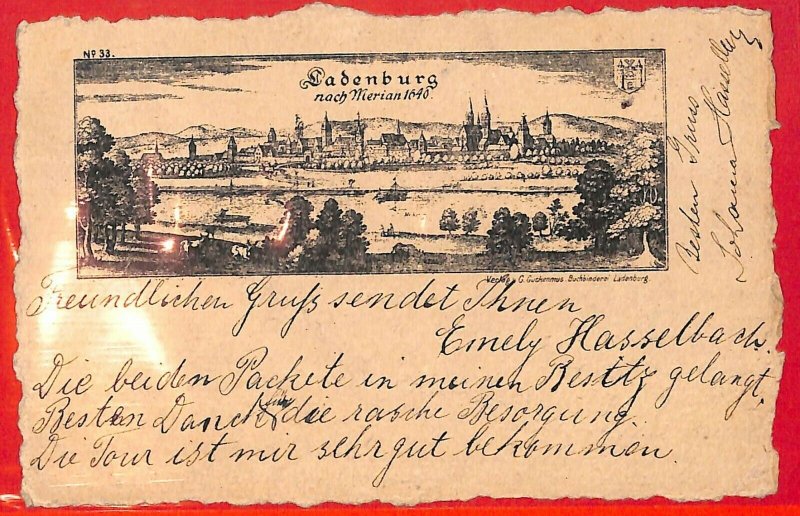 Nº 33.
Ladenburg
nach Merian 1640.
Verlag v. G. Guckenmus. Buchbinderei Ladenburg.
Besten Gruss
Johanna
Freundlichen Gruß sendet Ihnen
Emely Hasselbach.
Die beiden Packete in meinen Besitz gelangt.
Besten Danck für die rasche Besorgung.
Die Tour ist mir sehr gut bekommen.